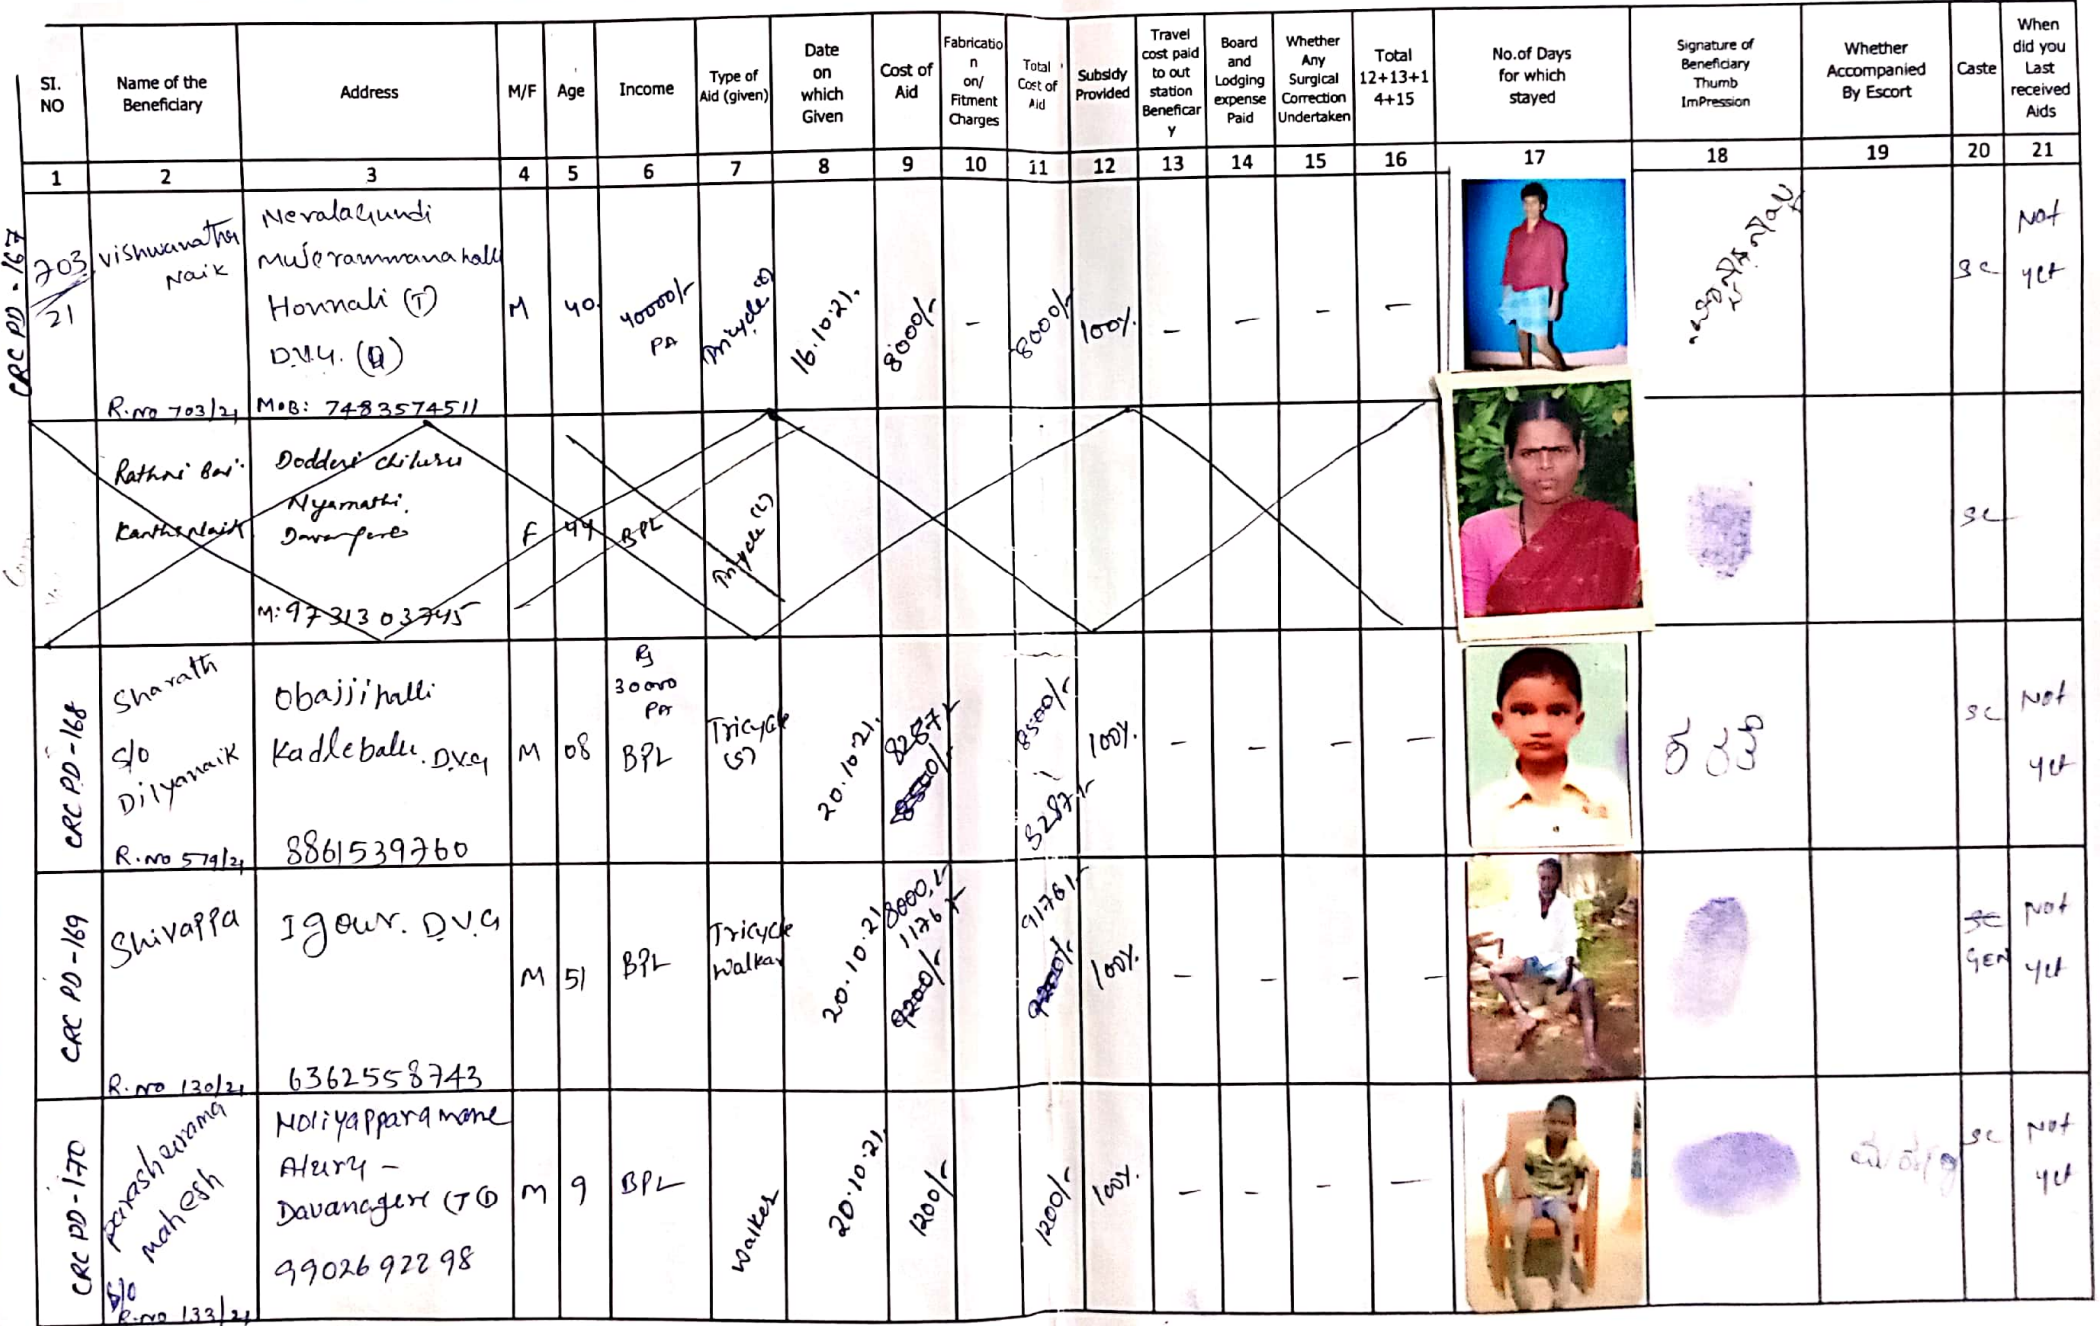 SI. NO
Name of the Beneficiary
Address
M/F
Age
Income
Type of Aid (given)
Date on which Given
Cost of Aid
Fabricatio n on/ Fitment Charges
Total Cost of Aid
Subsidy Provided
Travel cost paid to out station Beneficar y
Board and Lodging expense Paid
Whether Any Surgical Correction Undertaken
Total 12+13+1 4+15
No.of Days for which stayed
Signature of Beneficiary Thumb ImPression
Whether Accompanied By Escort
Caste
When did you Last received Aids
1 2 3 4 5 6 7 8 9 10 11 12 13 14 15 16 17 18 19 20 21
CRC PD - 167
703/21
Vishwanatha Naik
R.no 703/21
Neralagundi
Honnali (T)
MOB: 7483574511
M
40
40000/- PA
Tricycle
16.10.21.
8000/-
-
8000/-
100%
-
-
-
-
SC
Not yet
Rathni Bai
Kantha Naik
Nyamathi.
Davangere
M: 9731303745
F
44
BPL
Tricycle
SC
CRC PD - 168
Sharath
S/o
Dilyanaik
R.no 579/21
Obajjihalli
Kadlebalu. D.V.G
8861539760
M
08
Rs 30000 PA
BPL
Tricycle (S)
20.10.21.
8287/-
8500/-
8500/-
8287/-
100%.
-
-
-
-
ಶರತ್
SC
Not yet
CRC PD - 169
Shivappa
R.no 130/21
Igour. D.V.G
6362558743
M
51
BPL
Tricycle
Walkar
20.10.21
8000/-
1176/-
9200/-
9176/-
9200/-
100%.
-
-
-
-
SC
GEN
Not yet
CRC PD - 170
Parashurama
Mahesh
S/o
R.no 133/21
Alury -
Davanagere (T
9902692298
M
9
BPL
Walker
20.10.21.
1200/-
1200/-
100%.
-
-
-
-
SC
Not yet